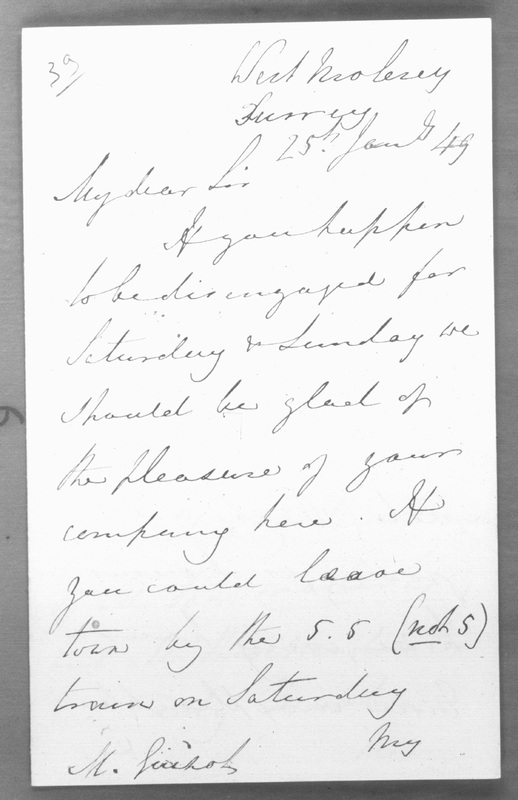 39/
West Molesey
Surrey
25th. Jany 49
My dear Sir
If you happen
to be disengaged for
Saturday & Sunday we
should be glad of
the pleasure of your
company here. If
you could leave
town by the 5.5 (not 5)
train on Saturday
M. Guizot my